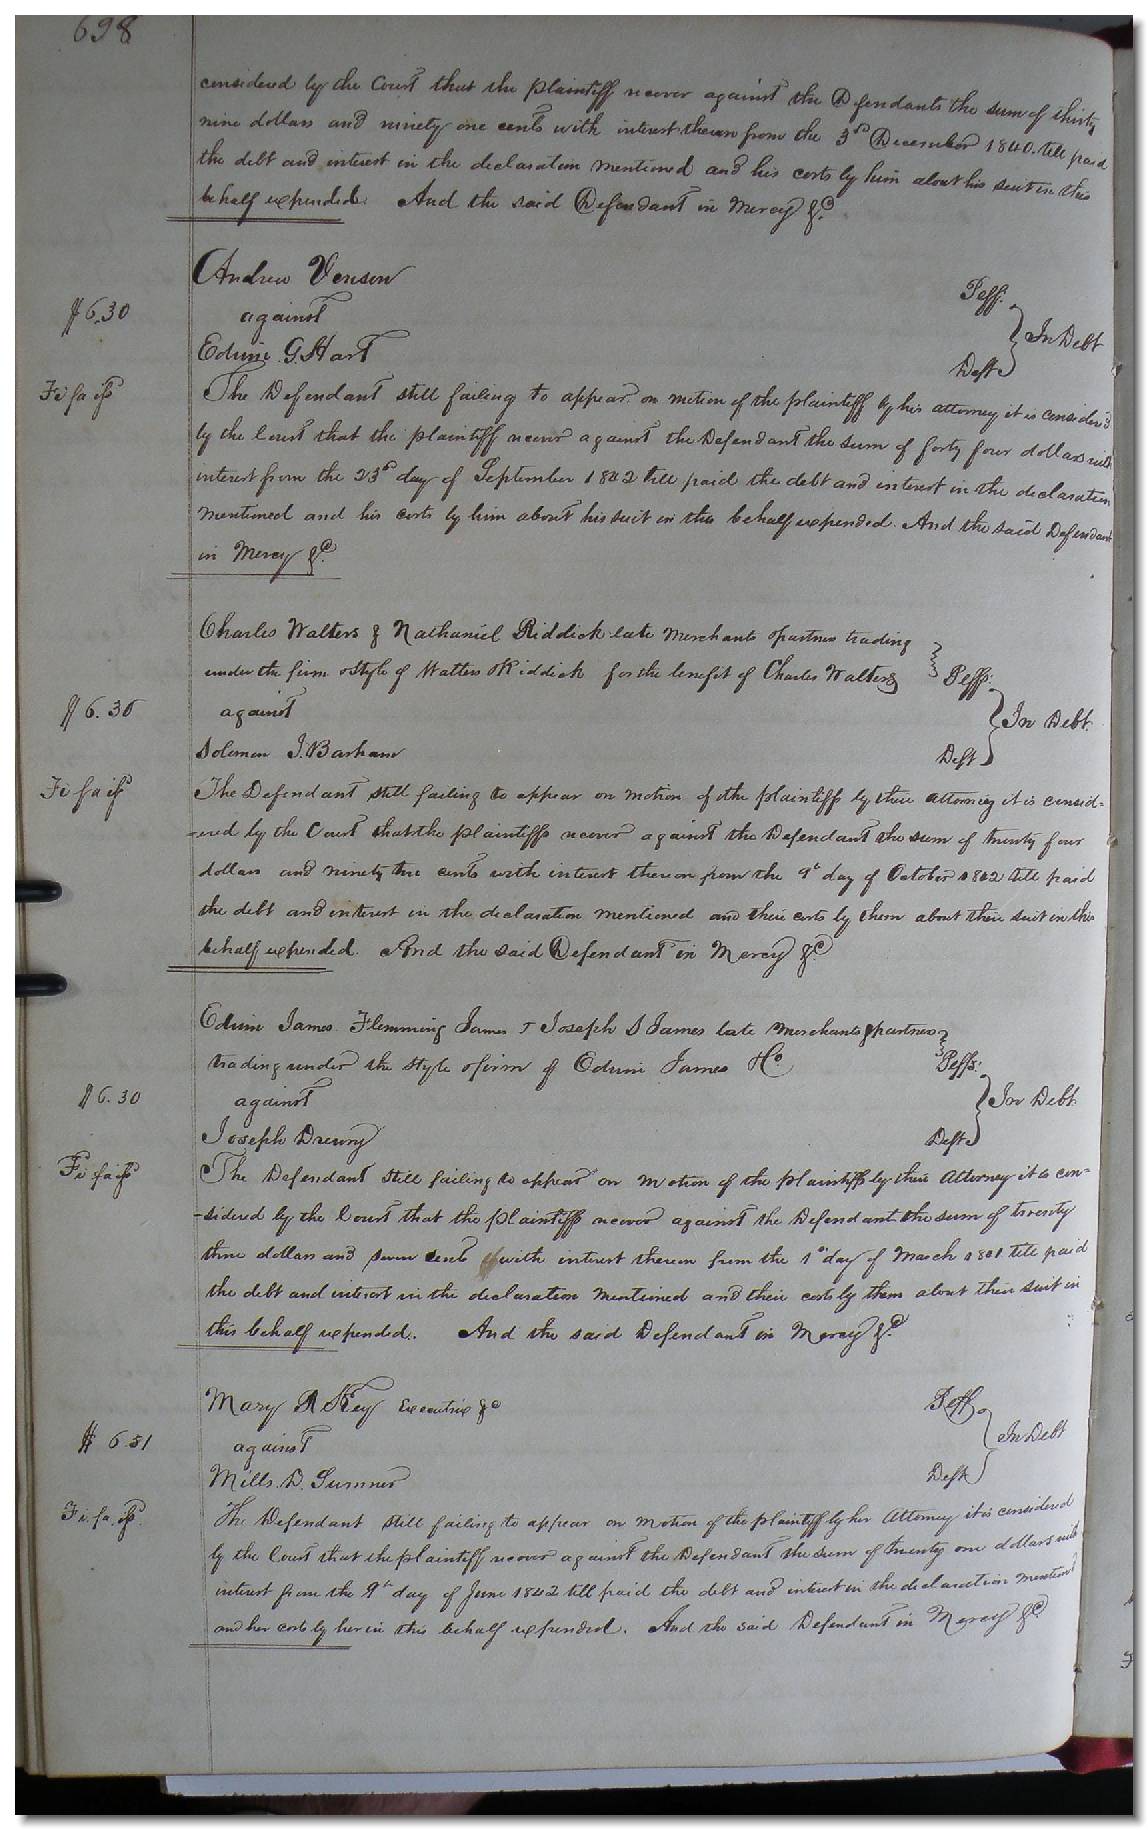 698
considered by the Court that the plaintiff recover against the Defendants the sum of thirty
nine dollars and ninety one cents with interest thereon from the 3d December 1840. till paid
the debt and interest in the declaration mentioned and his costs by him about his suit in this
behalf expended. And the said Defendant in Mercy &c.
Andrew Venson
Peff.
$6.30
against
In Debt
Edwin G. Hart
Deft
Fi fa iss
The Defendant still failing to appear on motion of the plaintiff by his attorney it is considered
by the Court that the plaintiff recover against the Defendant the sum of forty four dollars with
interest from the 23d day of September 1842 till paid the debt and interest in the declaration
mentioned and his costs by him about his suit in this behalf expended. And the said Defendant
in Mercy &c.
Charles Walters & Nathaniel Riddick late Merchants & partners trading
under the firm & style of Walters & Riddick for the benefit of Charles Walters
Peffs.
$6.30
against
In Debt.
Solomon J. Barham
Deft
Fi fa iss
The Defendant still failing to appear on motion of the plaintiffs by their attorney it is consid=
=ered by the Court that the plaintiffs recover against the Defendant the sum of twenty four
dollars and ninety three cents with interest thereon from the 9th day of October 1842 till paid
the debt and interest in the declaration mentioned and their costs by them about their suit in this
behalf expended. And the said Defendant in Mercy &c
Edwin James Flemming James & Joseph S James late Merchants & partners
trading under the style & firm of Edwin James & Co.
Peffs.
$6.30
against
In Debt
Joseph Drewry
Deft
Fi fa iss
The Defendant still failing to appear on motion of the plaintiffs by their Attorney it is con=
=sidered by the Court that the plaintiffs recover against the Defendant the sum of twenty
three dollars and seven cents with interest thereon from the 1st day of March 1841 till paid
the debt and interest in the declaration mentioned and their costs by them about their suit in
this behalf expended. And the said Defendant in Mercy &c.
Mary R Key Executrix &c
Peff.
$6 51
against
In Debt
Mills. D. Sumner
Deft
Fi. fa. iss.
The Defendant still failing to appear on motion of the plaintiff by her Attorney it is considered
by the Court that the plaintiff recover against the Defendant the sum of twenty one dollars with
interest from the 9th day of June 1842 till paid the debt and interest in the declaration mentioned
and her costs by her in this behalf expended. And the said Defendant in Mercy &c